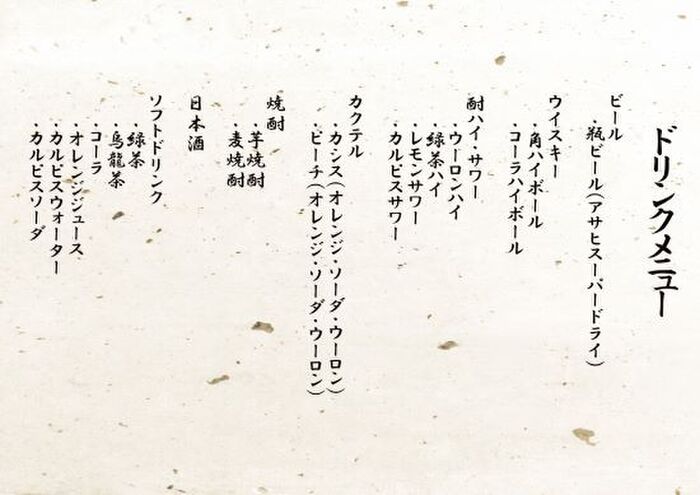 ドリンクメニュー
ビール
・瓶ビール(アサヒスーパードライ)
ウイスキー
・角ハイボール
・コーラハイボール
酎ハイ・サワー
・ウーロンハイ
・緑茶ハイ
・レモンサワー
・カルピスサワー
カクテル
・カシス(オレンジ・ソーダ・ウーロン)
・ピーチ(オレンジ・ソーダ・ウーロン)
焼酎
・芋焼酎
・麦焼酎
日本酒
ソフトドリンク
・緑茶
・烏龍茶
・コーラ
・オレンジジュース
・カルピスウォーター
・カルピスソーダ